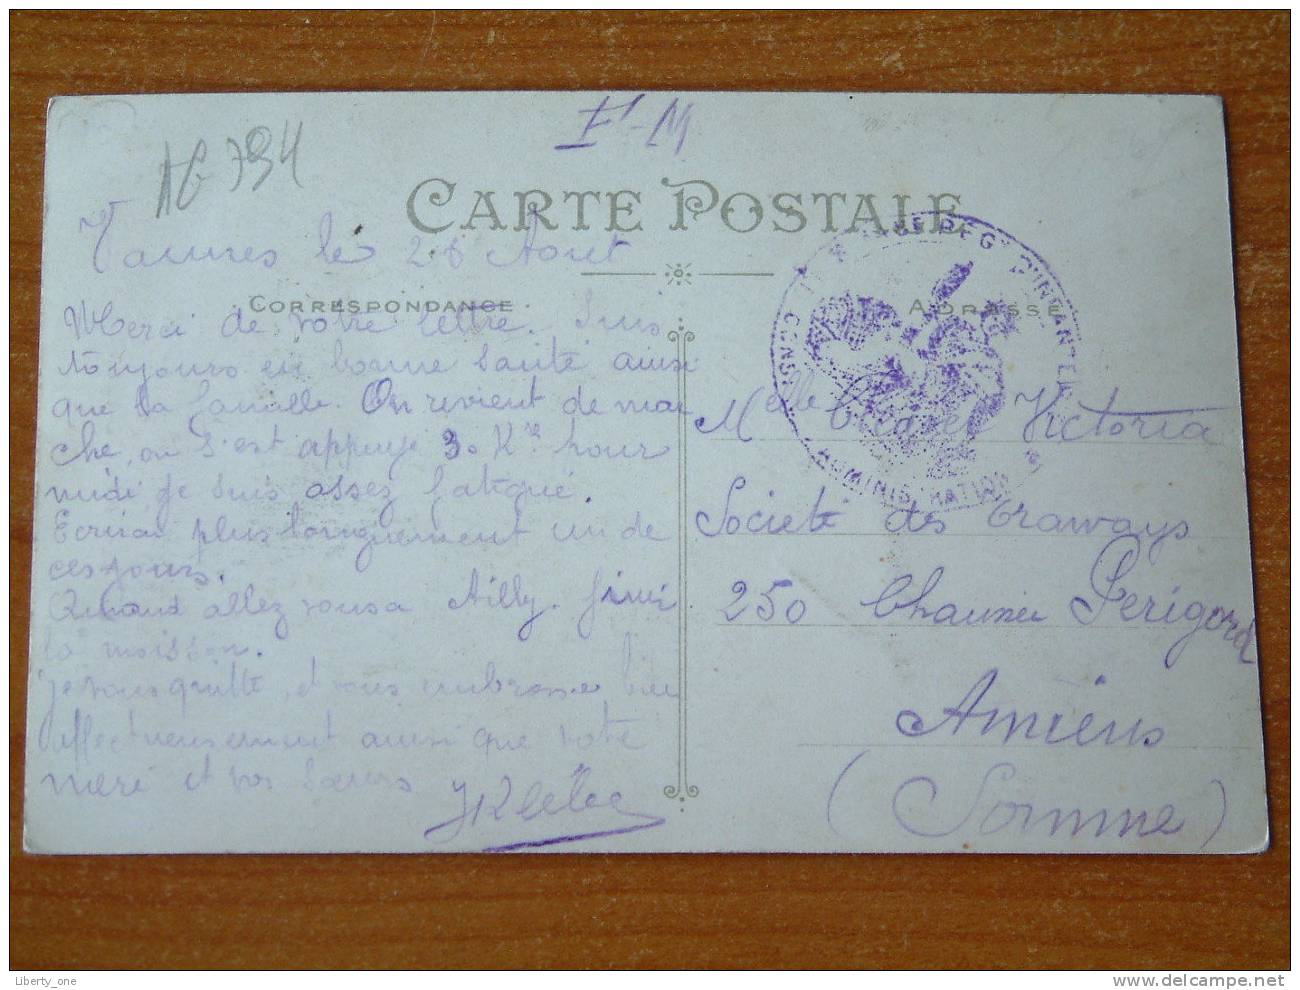 F-M
AG 794
CARTE POSTALE
Vannes le 28 Aout
CORRESPONDANCE
ADRESSE
Merci de votre lettre. Suis
toujours en bonne santé ainsi
que la famille. On revient de mar
che, on s'est appuyé 30 K pour
midi je suis assez fatigué.
Ecrirai plus longuement un de
ces jours.
Quand allez vous a Ailly. finir
la moisson.
je vous quitte, et vous embrasse bien
affectueusement ainsi que votre
mere et vos soeurs
REGT D'INFANTERIE
ADMINISTRATION
Melle Victoria
Societé des Tramways
250 Chaussée Perigord
Amiens
(Somme)
Liberty_one
www.delcampe.net